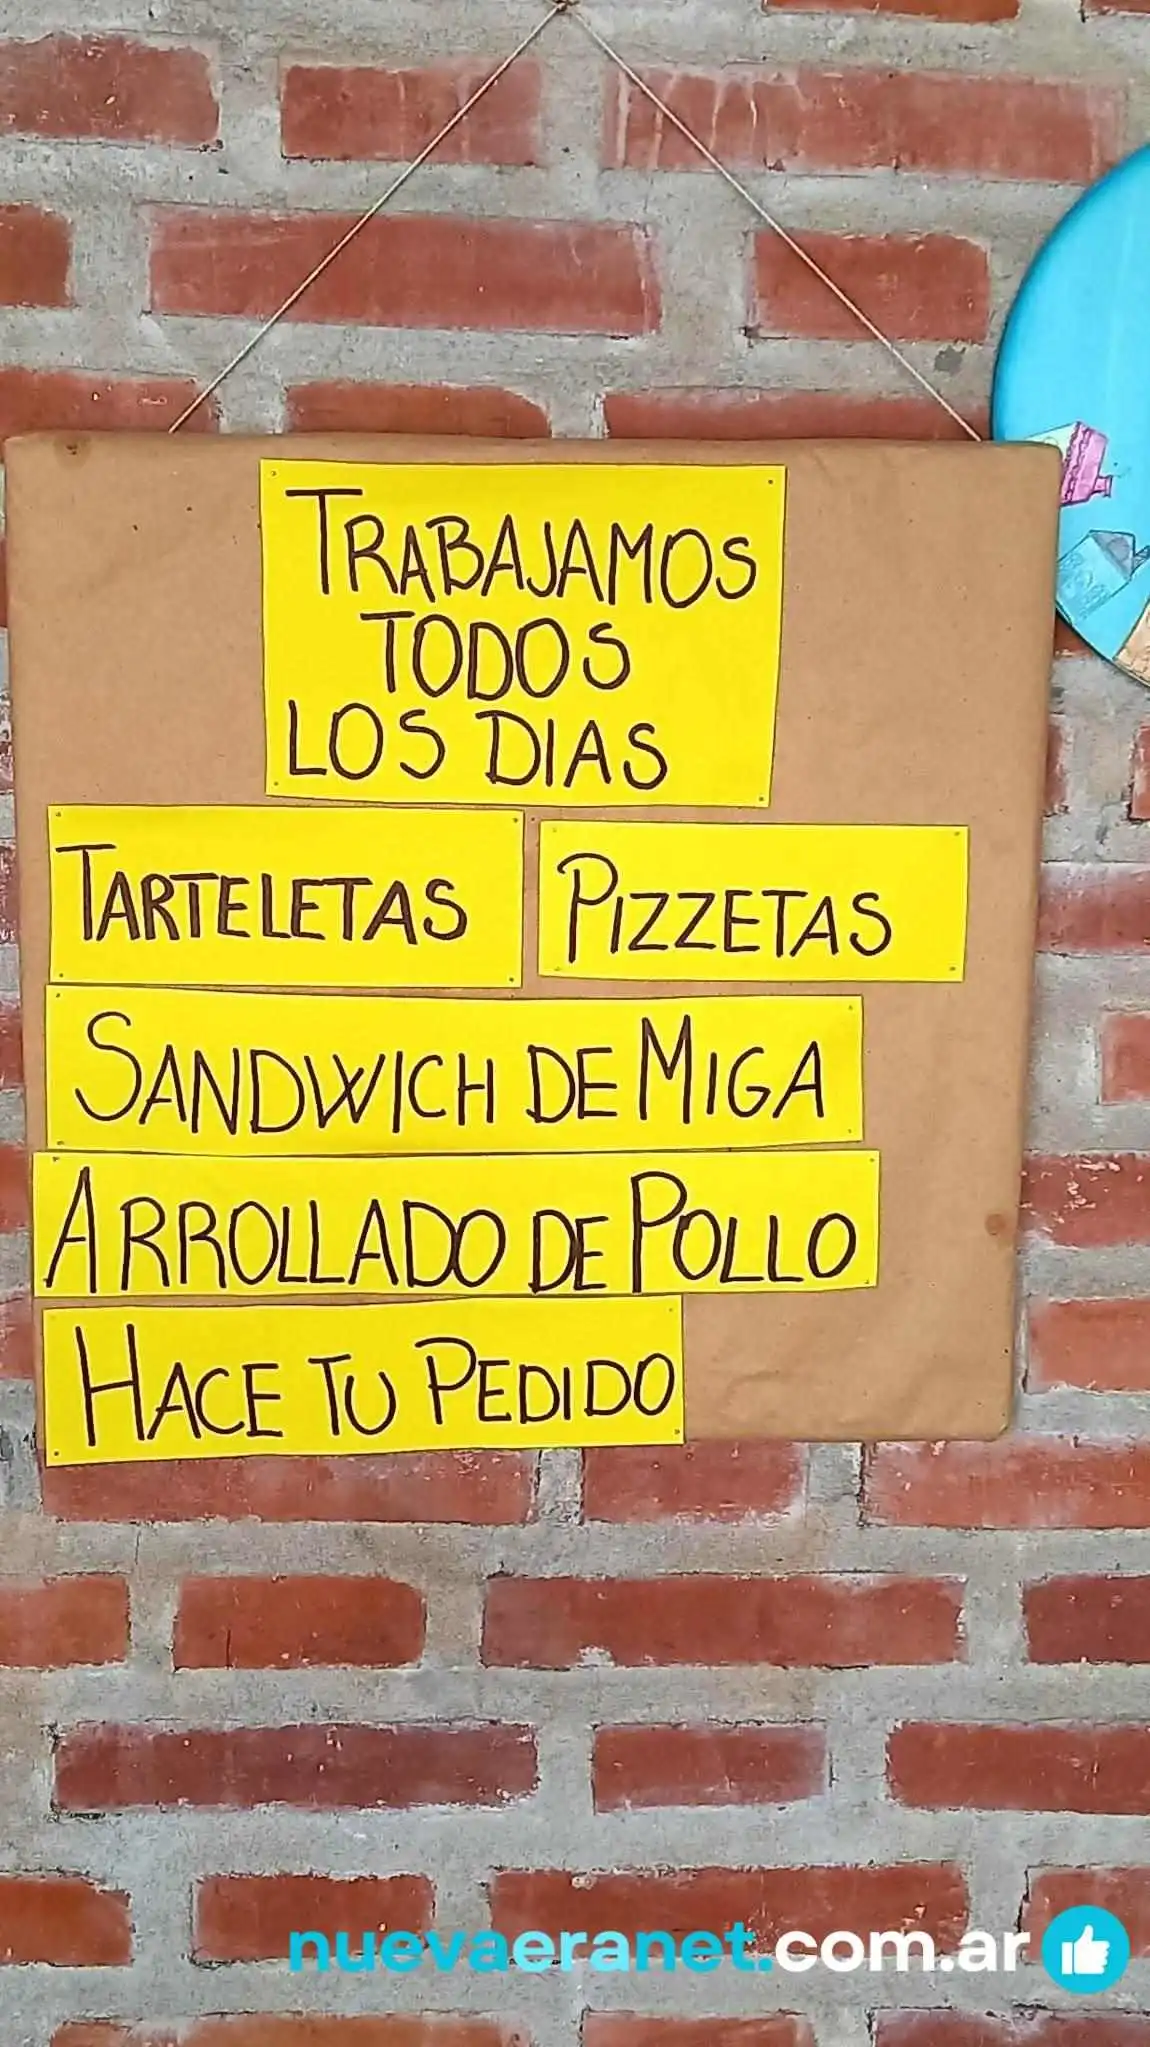 TRABAJAMOS
TODOS
LOS DIAS
TARTELETAS
PIZZETAS
SANDWICH DE MIGA
ARROLLADO DE POLLO
HACE TU PEDIDO
nuevaeranet.com.ar